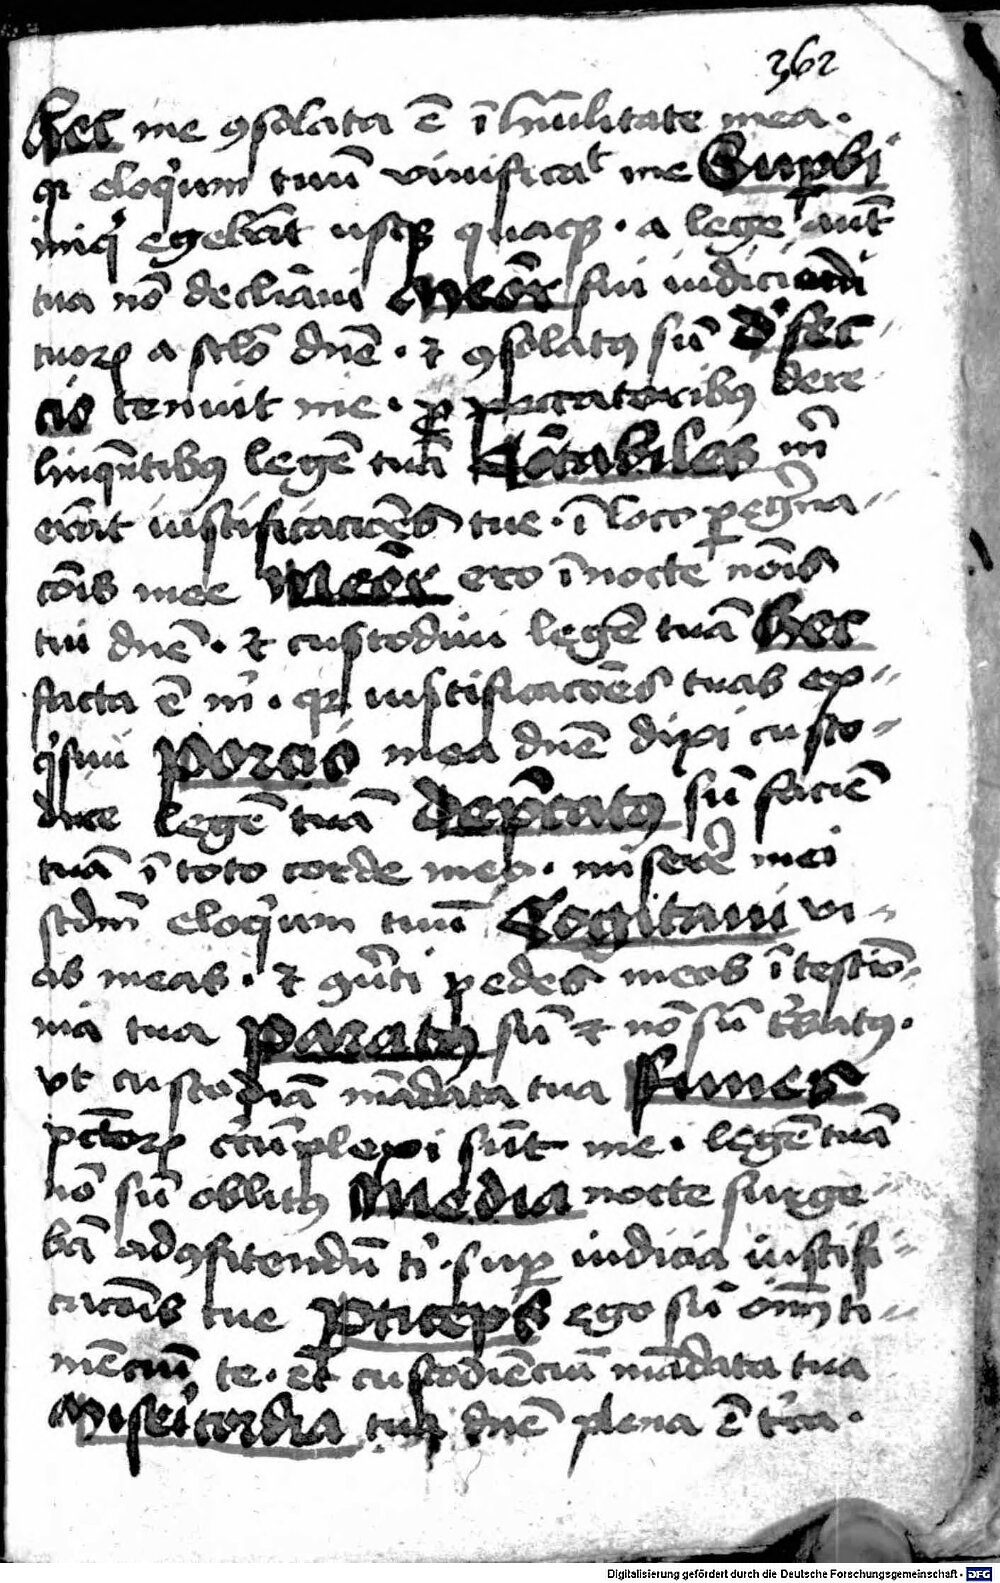 362
Hec me ꝯsolata ē ī hūilitate mea.
qꝛ eloqͥum tuū viuificaͭ me Suꝑbi
iniqͥ egebāt usqꝫ quaqꝫ. a lege aūt
tua nō declīaui Meōr fui iudicioꝝ
tuoꝝ a sclo dnē. ⁊ ꝯsolatꝰ sū Defec
cio tenuit me. ꝓ peccatoribꝰ dere
linquētibꝰ legē tuā Cātabiles m̄
erāt iustificacōēs tue. ī loco peg̃na
cōis mee Meōr ero ī nocte nōis
tui dnē. ⁊ custodiui legē tuā Hec
facta ē m̄. qꝛ iustificacōēs tuas ex
qͥsiui Porcio mea dnē dixi custo
dire legē tuā Dep̄catꝰ sū faciē
tuā ī toto corde meo. miserē mei
scdm̄ eloqͥum tuū Cogitaui vi
as meas. ⁊ ꝯūti pedes meos ī testiō
nia tua Paratꝰ sū ⁊ nō sū t̄batꝰ.
vt custodiā mādata tua Funes
pctōꝝ cͥcūplexi sūt me. legē tuā
nō sū oblitꝰ Media nocte surge
bā ad ꝯfitendū tͥ. suꝑ iudicia iustifi
cacōis tue Pticeps ego sū oīm ti
mēciū te. et custodiēciū mādata tua
Misericordia tua dnē plena ē tͥra.
Digitalisierung gefördert durch die Deutsche Forschungsgemeinschaft - DFG